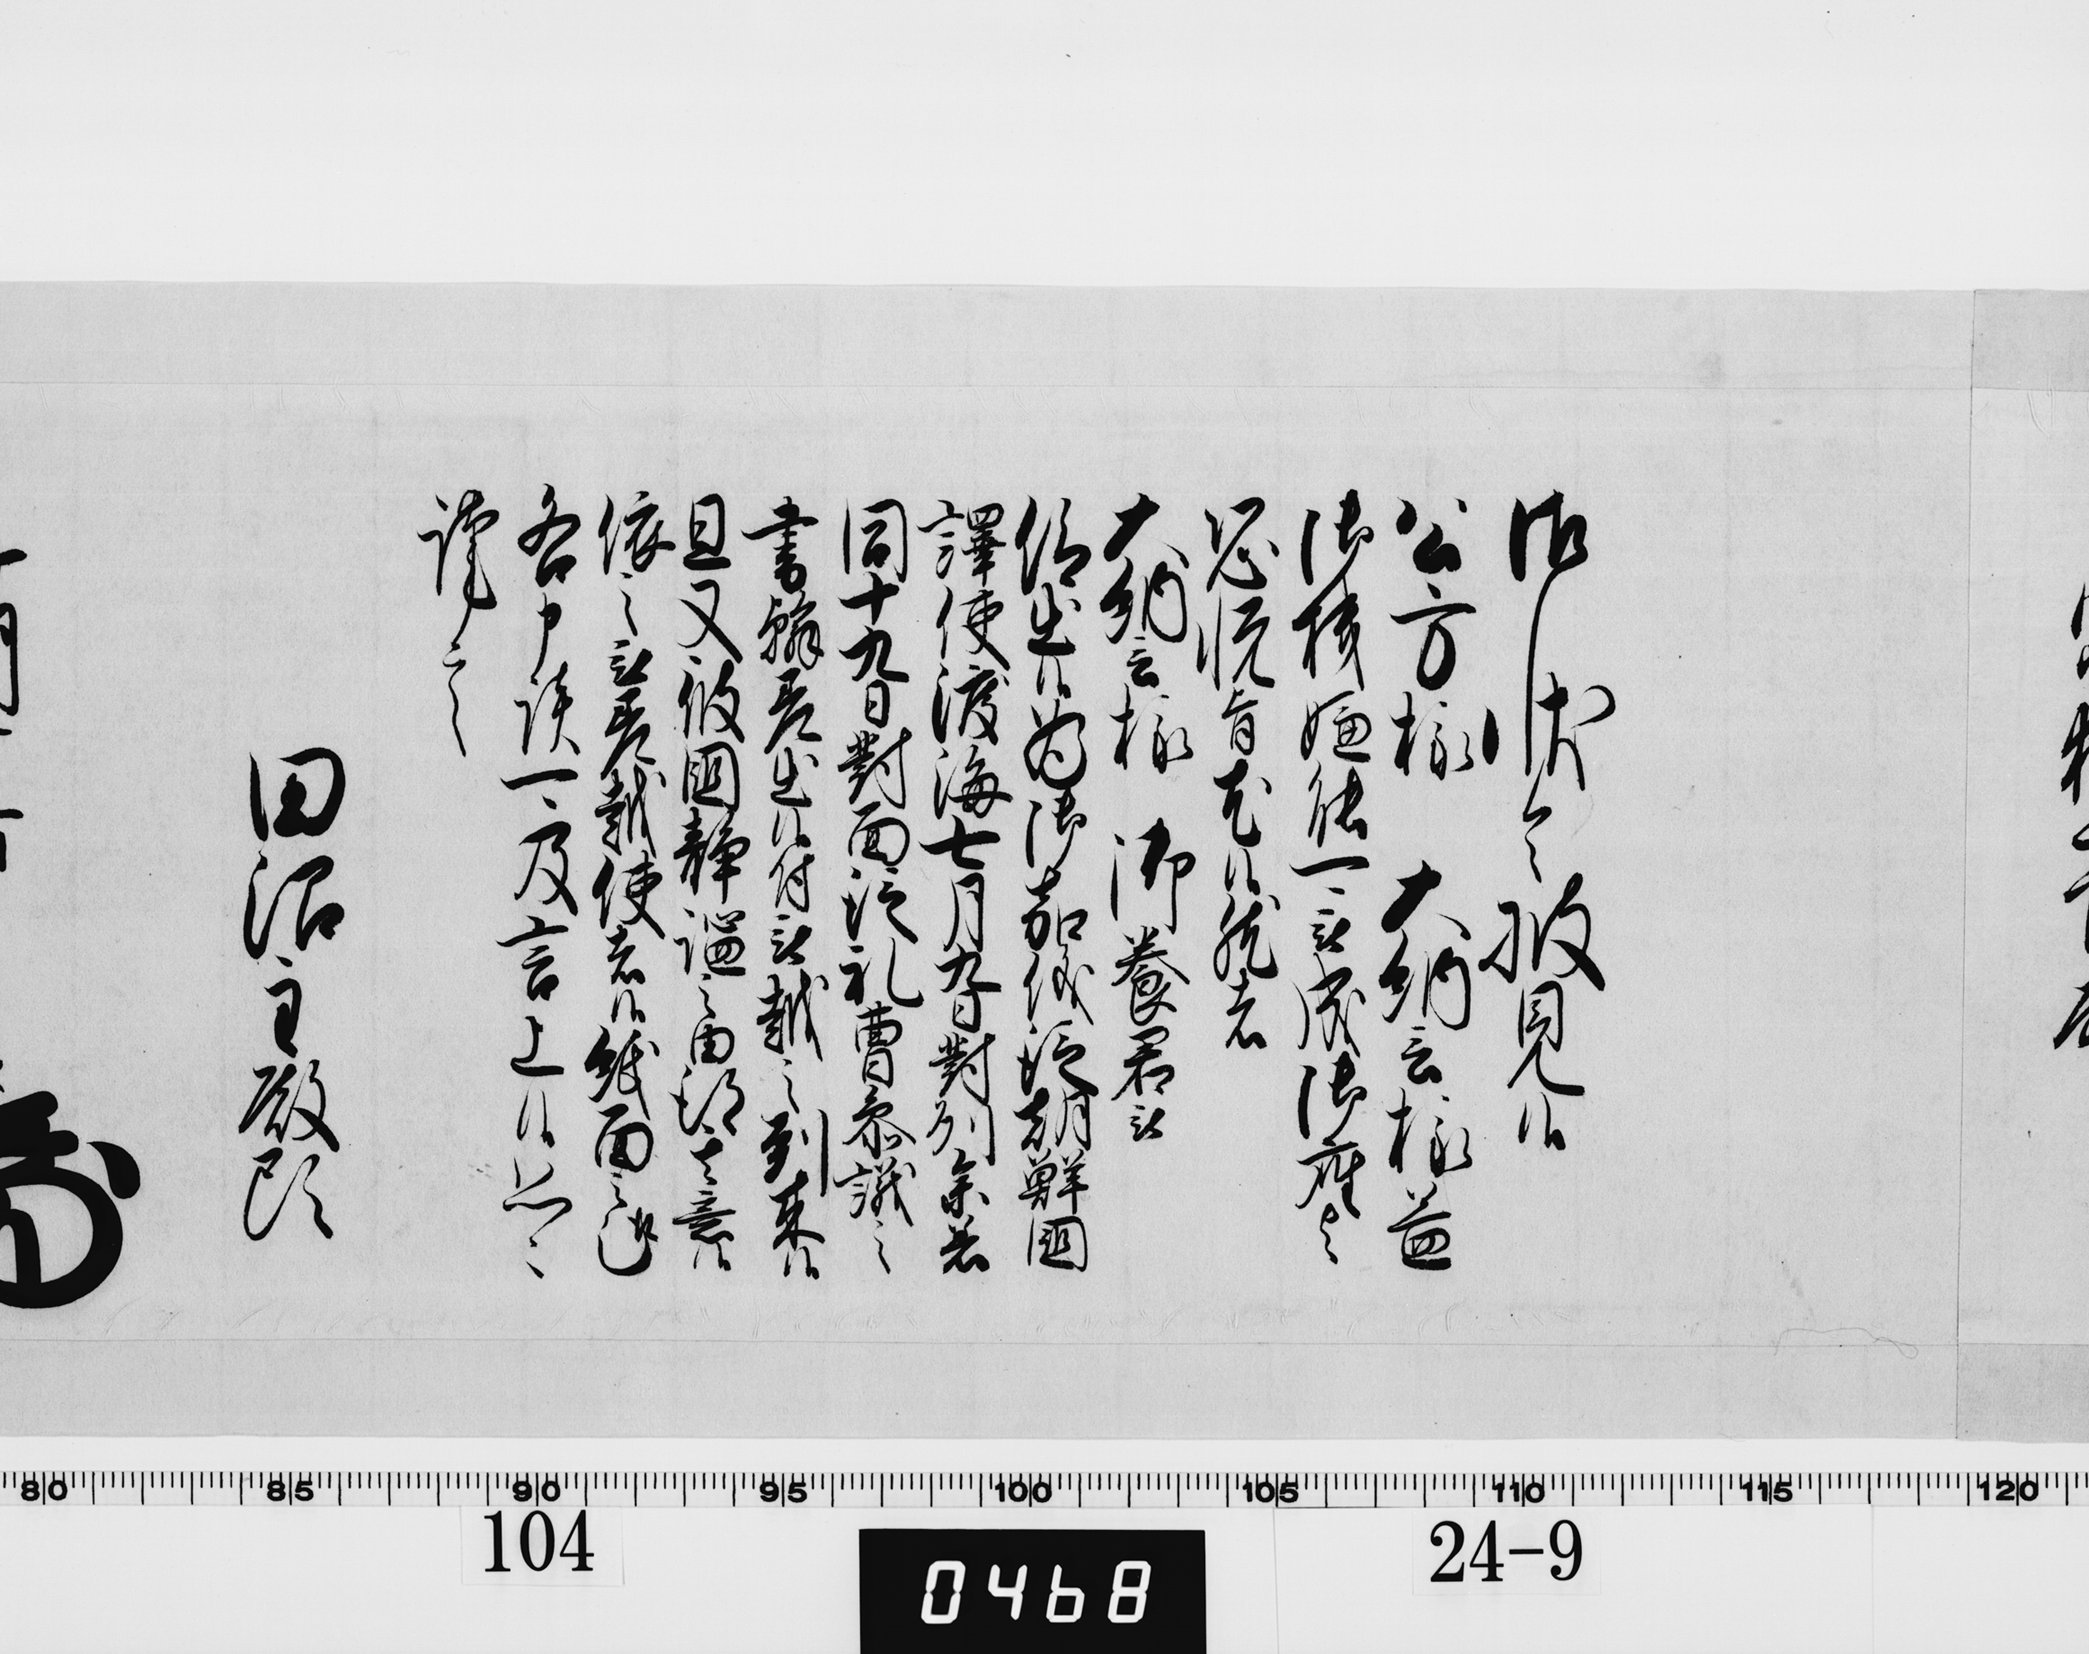 御状令披見候
公方様 大納言様益
御機嫌能被成御座之
恐悦旨尤候然者
大納言様 御養君被
仰出候為御嘉儀従朝鮮国
譯使渡海七月九日對列参着
同十九日對面従礼曹参議之
書翰差出候付被越之到来候
且又彼国静謐之由得其意候
依之被差越使者候紙面之趣
各申談一々及言上候恐々
謹言
田沼主殿頭
80 85 90 95 100 105 110 115 120
104
0468
24-9